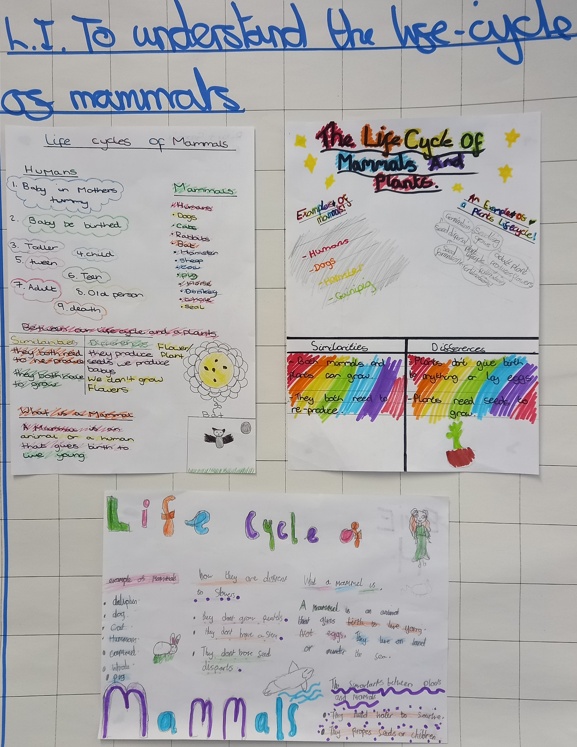 L.I. To understand the life-cycle
of mammals
Life cycles of Mammals
Humans
1. Baby in Mothers
tummy
2. Baby be birthed
3. Todler
4. child
5. tween
6. Teen
7. Adult
8. Old person
9. death
Mammals
Humans
Dogs
Cats
Rabbits
Bat
Hamster
Sheep
Cow
pig
Horse
Donkey
Whale
Seal
Between our life cycle and a plants
Similarities
they both need
to re-produce
they both have
to grow
Differences
they produce
seeds we produce
babys
we don't grow
Flowers
Flower
Plant
Bat
What is a Mammal
A Mammal is an
animal or a human
that gives birth to
live young
The Life Cycle Of
Mammals And
Plants.
Examples Of
mammals
- Humans
- Dogs
- Hamster
- Gainypig
An Example Of
a Plants Lifecycle!
Similarities
- Both mammals and
plants can grow
- They both need to
re-produce
Differences
- Plants don't give birth
to anything or lay eggs
- Plants need seeds to
grow
Life Cycle of
Mammals
example of mammals
dolphin
dog
cat
Hamster
whale
pig
How they are different
to
They dont grow
they dont have a
They dont have seed
What a mammal is
A mammal is an animal
that gives birth to live young
Not eggs. They live on land
or under the sea.
The between plants
and mammals
They have to survive